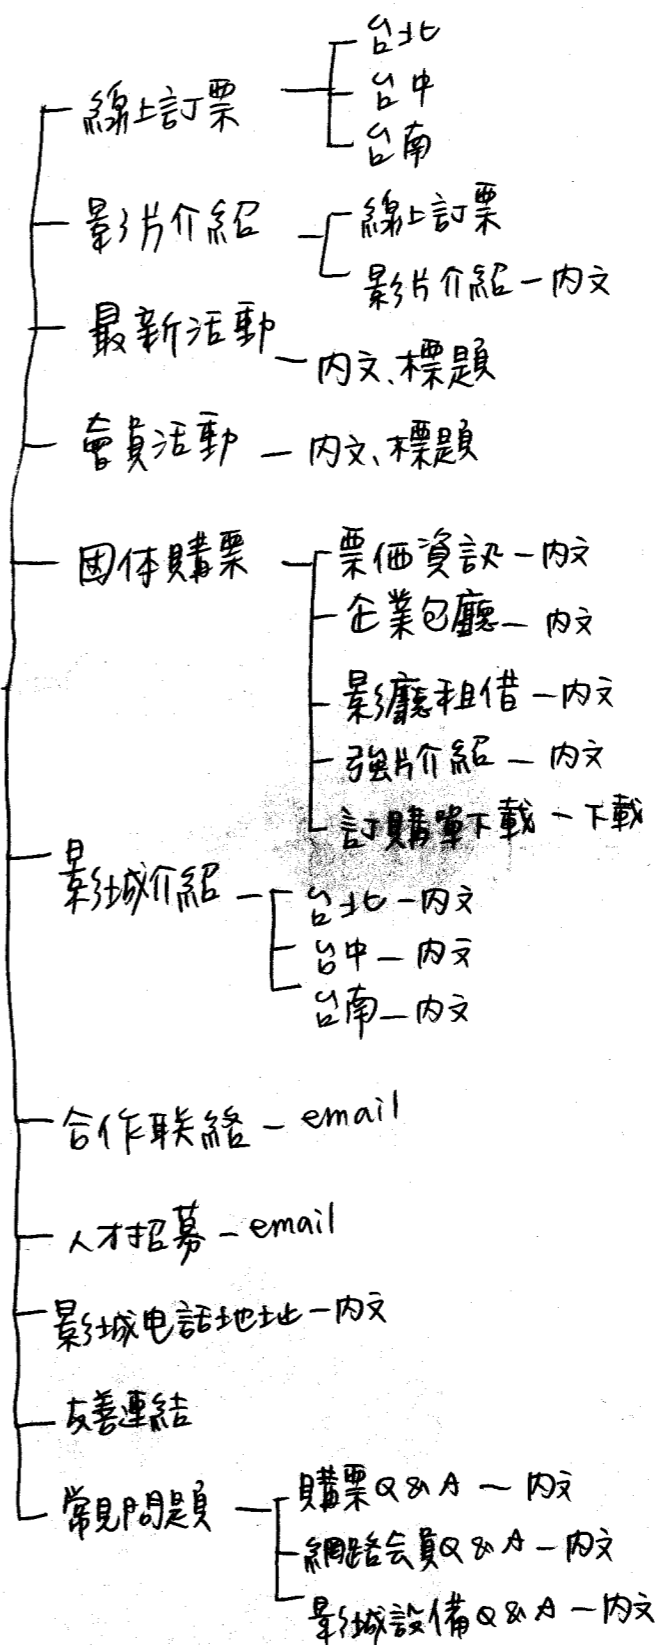 線上訂票
台北
台中
台南
影片介紹
線上訂票
影片介紹－內文
最新活動－內文、標題
會員活動－內文、標題
团体購票
票価資訊－內文
企業包廳－內文
影廳租借－內文
強片介紹－內文
訂購單下載－下載
影城介紹
台北－內文
台中－內文
台南－內文
合作联絡－email
人才招募－email
影城电話地址－內文
友善連結
常見問題
購票Q&A－內文
網路会員Q&A－內文
影城設備Q&A－內文